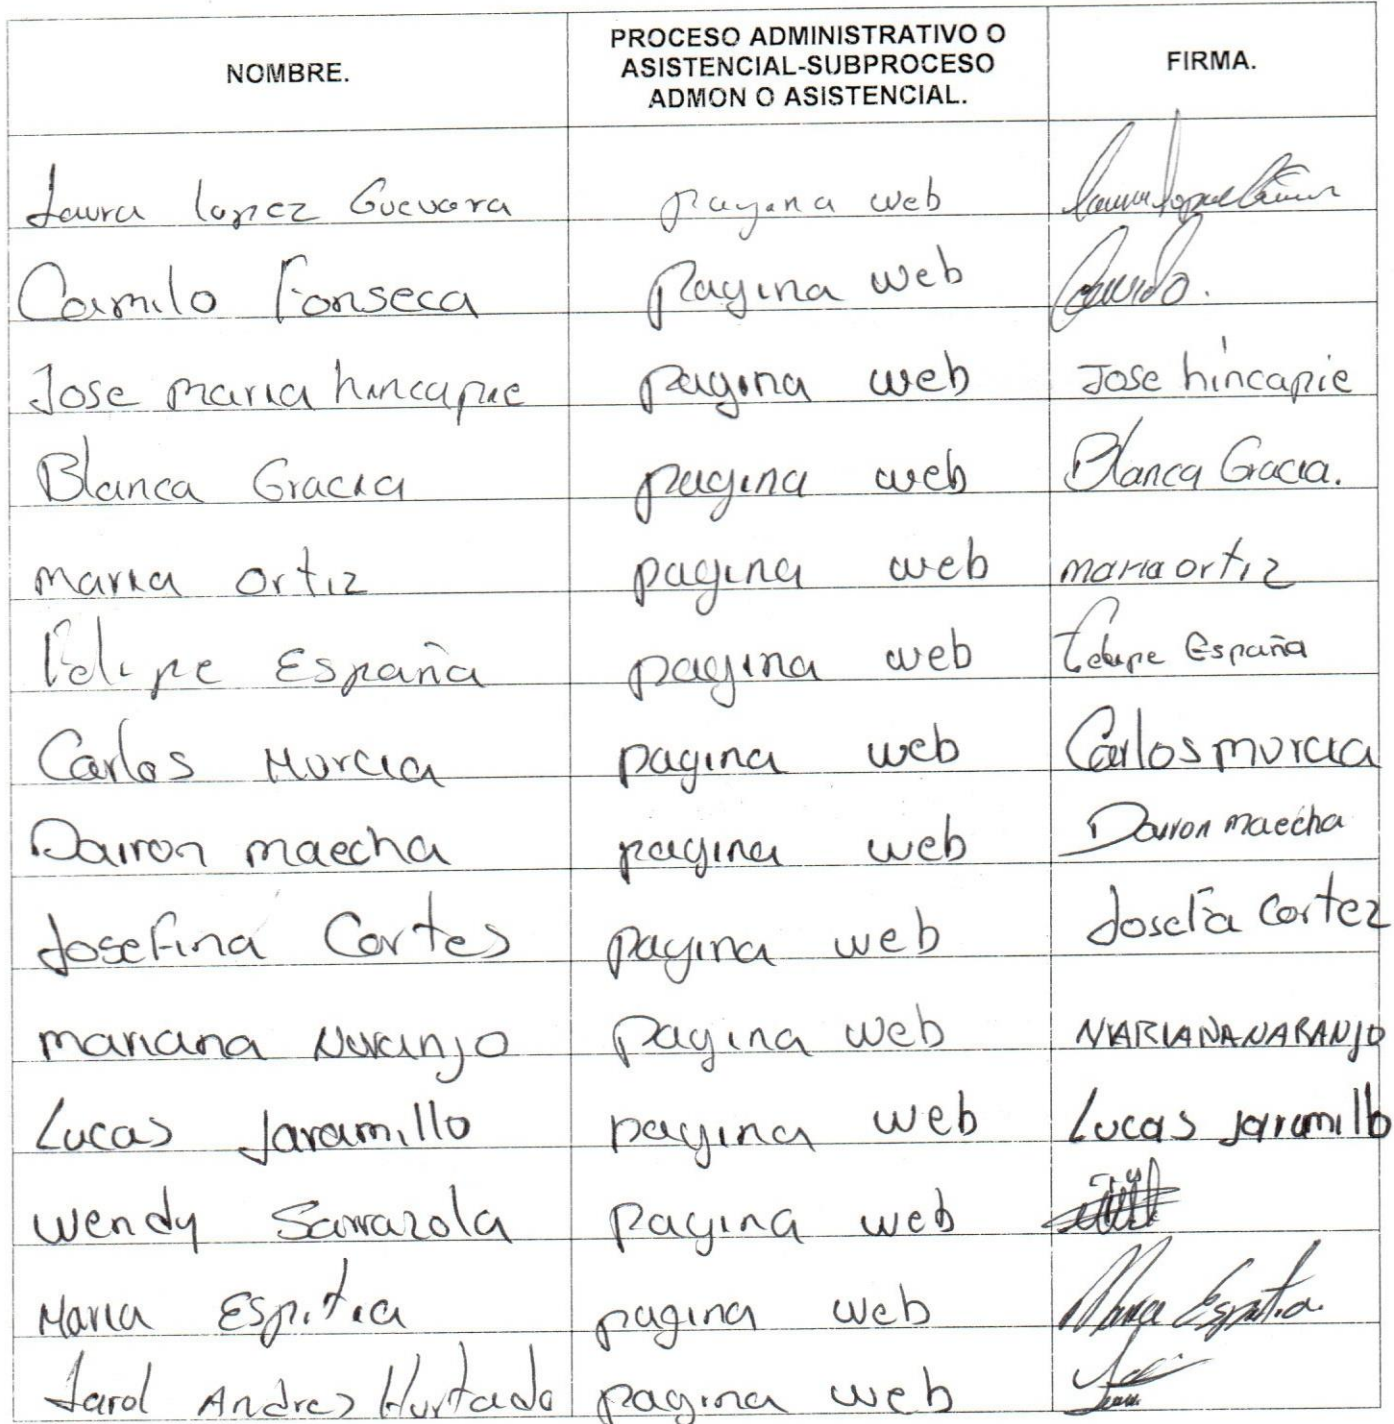 NOMBRE. PROCESO ADMINISTRATIVO O ASISTENCIAL-SUBPROCESO ADMON O ASISTENCIAL. FIRMA.
Laura lopez Guevara pagina web
Camilo Fonseca Pagina web Camilo.
Jose maria hincapie pagina web Jose hincapie
Blanca Gracia pagina web Blanca Gracia.
maria ortiz pagina web maria ortiz
Felipe España pagina web Felipe España
Carlos Murcia pagina web Carlos murcia
Dairon maecha pagina web Dairon maecha
Josefina Cortes pagina web Josefa cortez
mariana Naranjo Pagina web MARIANA NARANJO
Lucas Jaramillo pagina web Lucas jaramillo
wendy Sarrazola pagina web
Maria Espitia pagina web Maria Espitia
Jarol Andres Hurtado pagina web